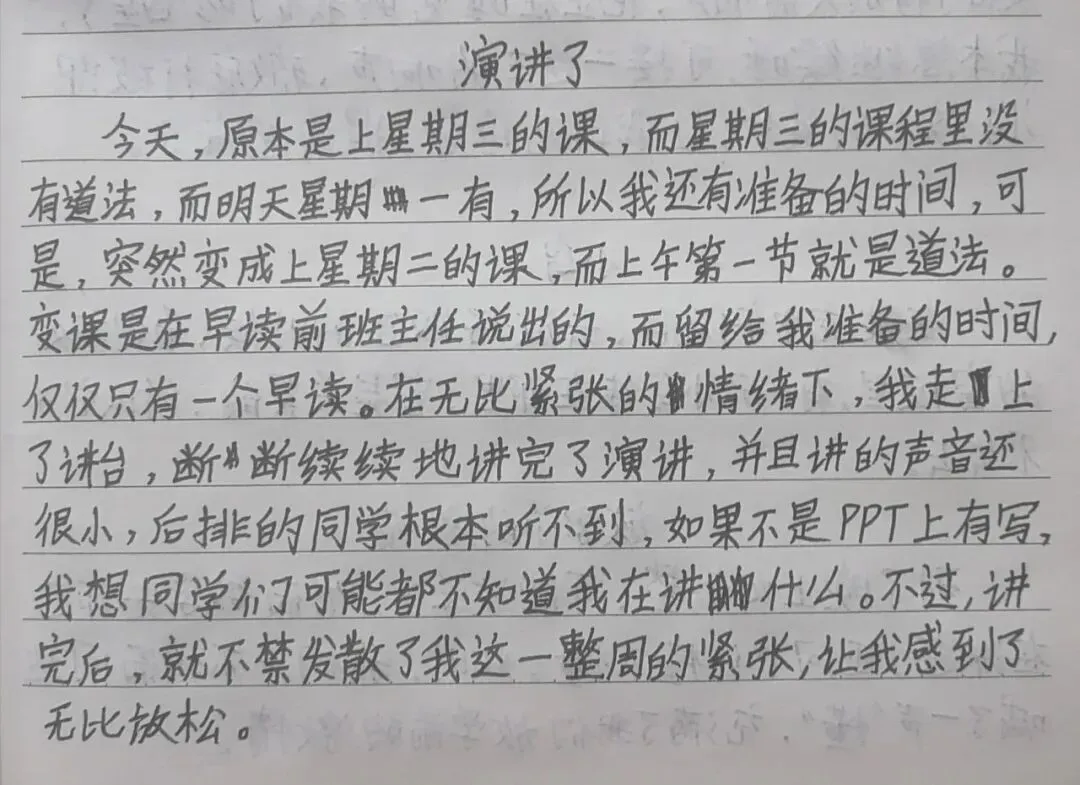 演讲了
今天，原本是上星期三的课，而星期三的课程里没
有道法，而明天星期一有，所以我还有准备的时间，可
是，突然变成上星期二的课，而上午第一节就是道法。
变课是在早读前班主任说出的，而留给我准备的时间，
仅仅只有一个早读。在无比紧张的情绪下，我走上
了讲台，断断续续地讲完了演讲，并且讲的声音还
很小，后排的同学根本听不到，如果不是PPT上有写，
我想同学们可能都不知道我在讲什么。不过，讲
完后，就不禁发散了我这一整周的紧张，让我感到了
无比放松。